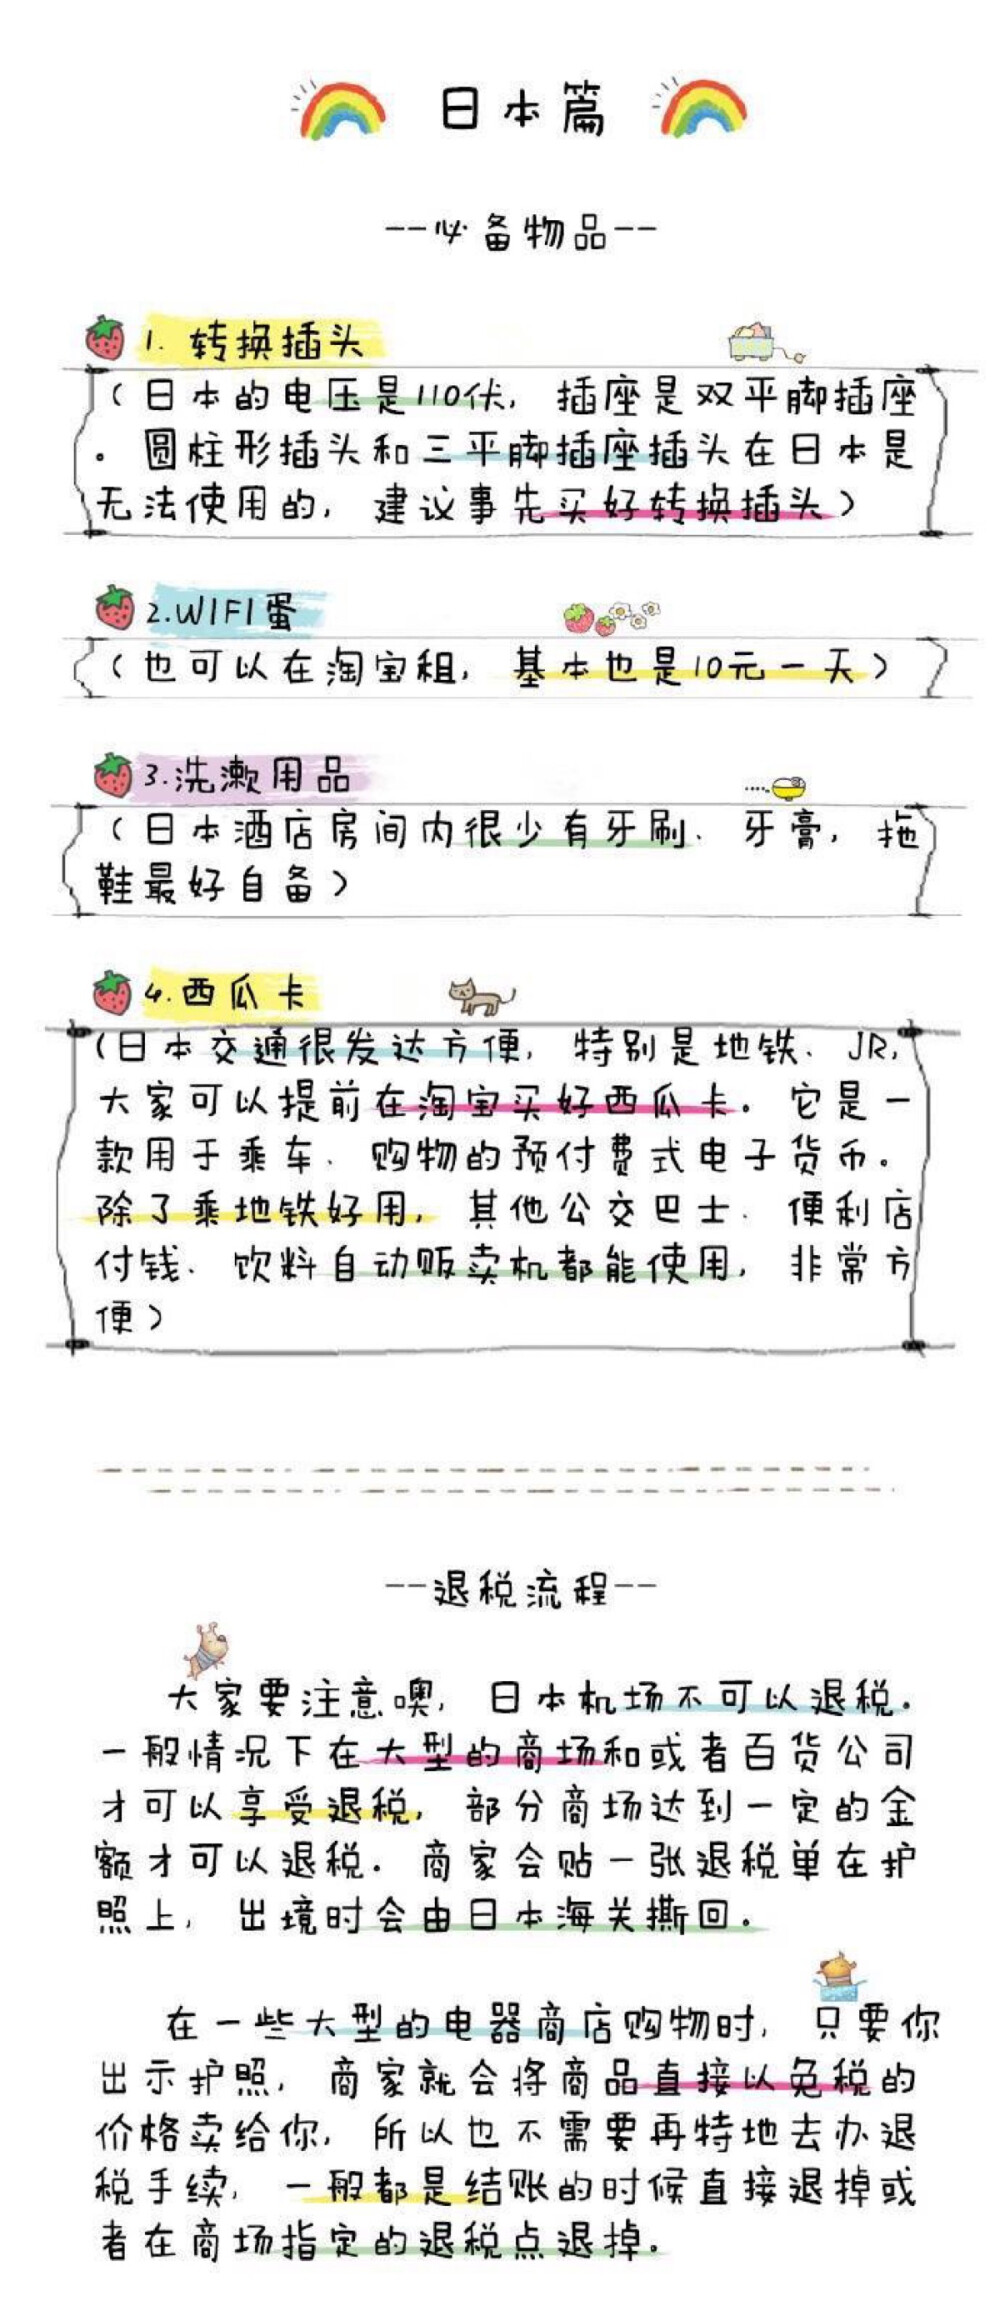 日本篇
--必备物品--
1. 转换插头
（日本的电压是110伏，插座是双平脚插座
。圆柱形插头和三平脚插座插头在日本是
无法使用的，建议事先买好转换插头）
2.WIFI蛋
（也可以在淘宝租，基本也是10元一天）
3.洗漱用品
（日本酒店房间内很少有牙刷、牙膏，拖
鞋最好自备）
4.西瓜卡
（日本交通很发达方便，特别是地铁、JR，
大家可以提前在淘宝买好西瓜卡。它是一
款用于乘车、购物的预付费式电子货币。
除了乘地铁好用，其他公交巴士、便利店
付钱、饮料自动贩卖机都能使用，非常方
便）
--退税流程--
大家要注意噢，日本机场不可以退税.
一般情况下在大型的商场和或者百货公司
才可以享受退税，部分商场达到一定的金
额才可以退税.商家会贴一张退税单在护
照上，出境时会由日本海关撕回。
在一些大型的电器商店购物时，只要你
出示护照，商家就会将商品直接以免税的
价格卖给你，所以也不需要再特地去办退
税手续，一般都是结账的时候直接退掉或
者在商场指定的退税点退掉。